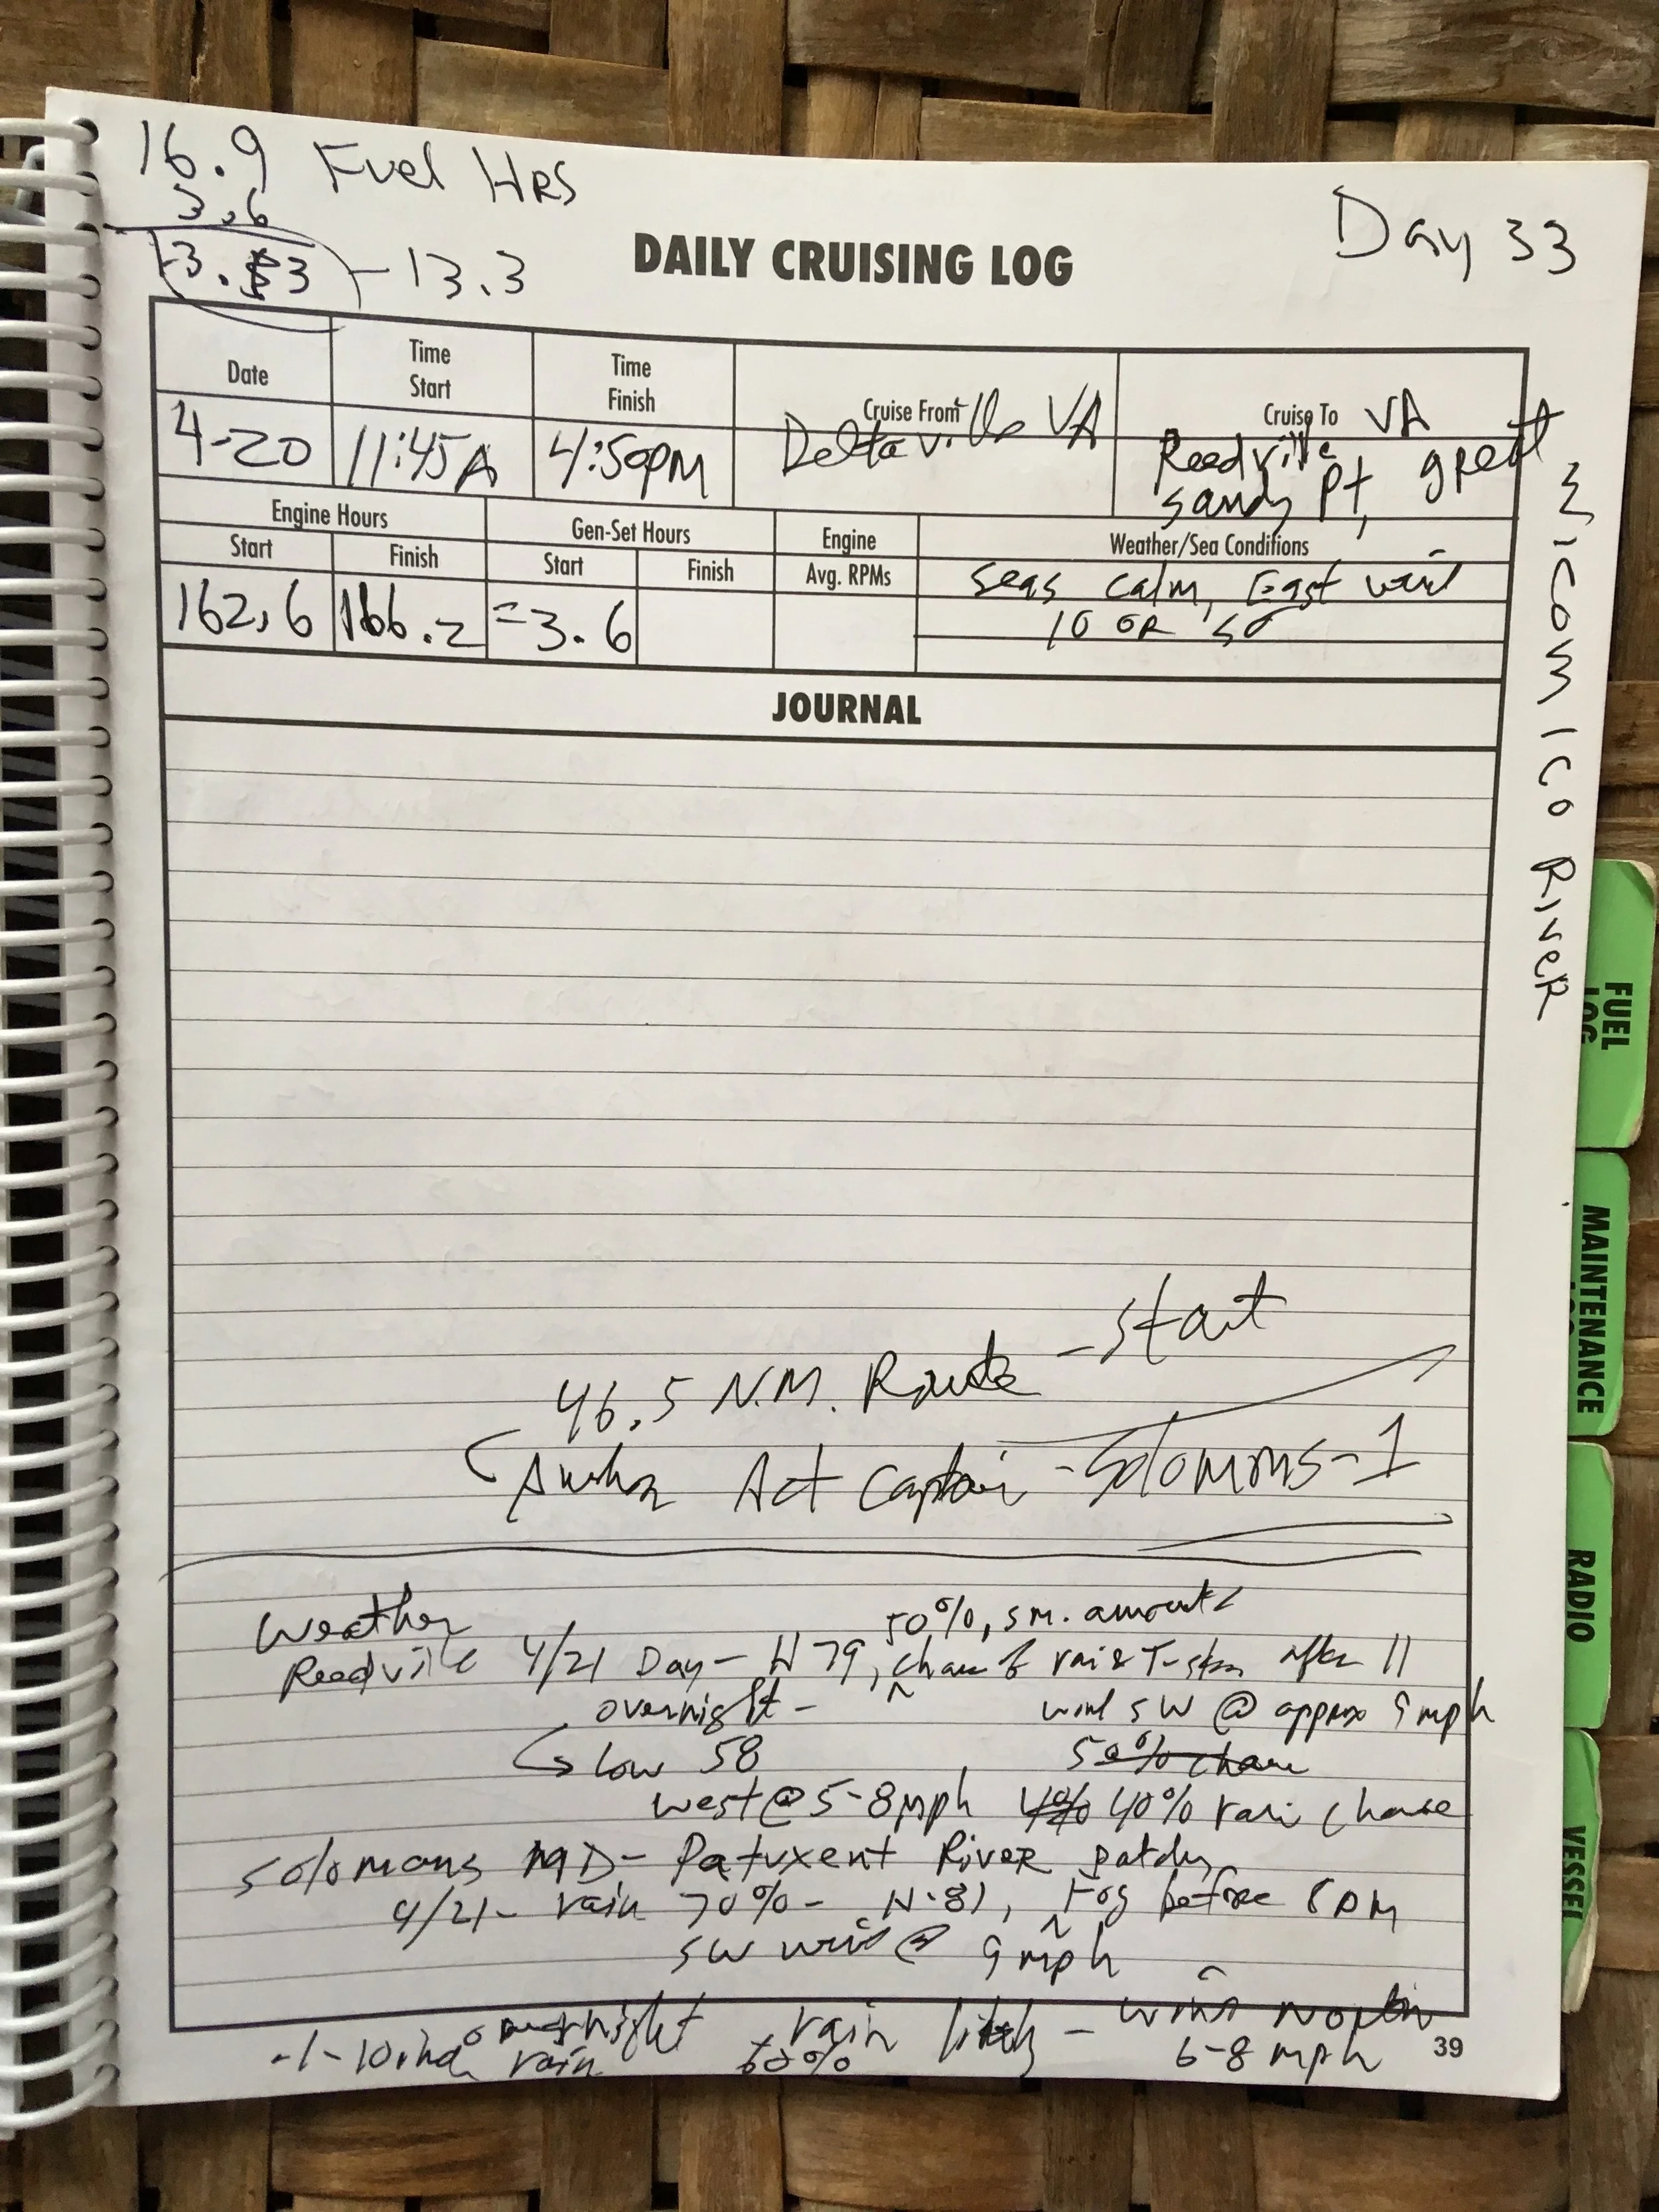 16.9 Fuel HRS
3.6
13.3 - 13.3
Day 33
DAILY CRUISING LOG
Date
Time Start
Time Finish
Cruise From
Cruise To
4-20
11:45A
4:50PM
Deltaville VA
VA
Reedville
sandy Pt, great
WICOMICO RIVER
Engine Hours
Gen-Set Hours
Engine
Weather/Sea Conditions
Start
Finish
Start
Finish
Avg. RPMs
162.6
166.2
=3.6
seas calm, East wind
10 OR so
JOURNAL
46.5 N.M. Route - start
Act Captain - Solomons-1
Weather
50%, sm. amounts
Reedville 4/21 Day - H 79, chance of rain & T-storm after 11
overnight -
wind SW @ approx 9 mph
Low 58
50% chance
west @ 5-8 mph 40% 40% rain chance
Solomons MD - Patuxent River patchy
4/21 - rain 70% - H-81, Fog before 8 PM
SW wind @ 9 mph
overnight rain likely - wind North
.1-10 inch rain 60% 6-8 mph
39
FUEL LOG
MAINTENANCE
RADIO
VESSEL